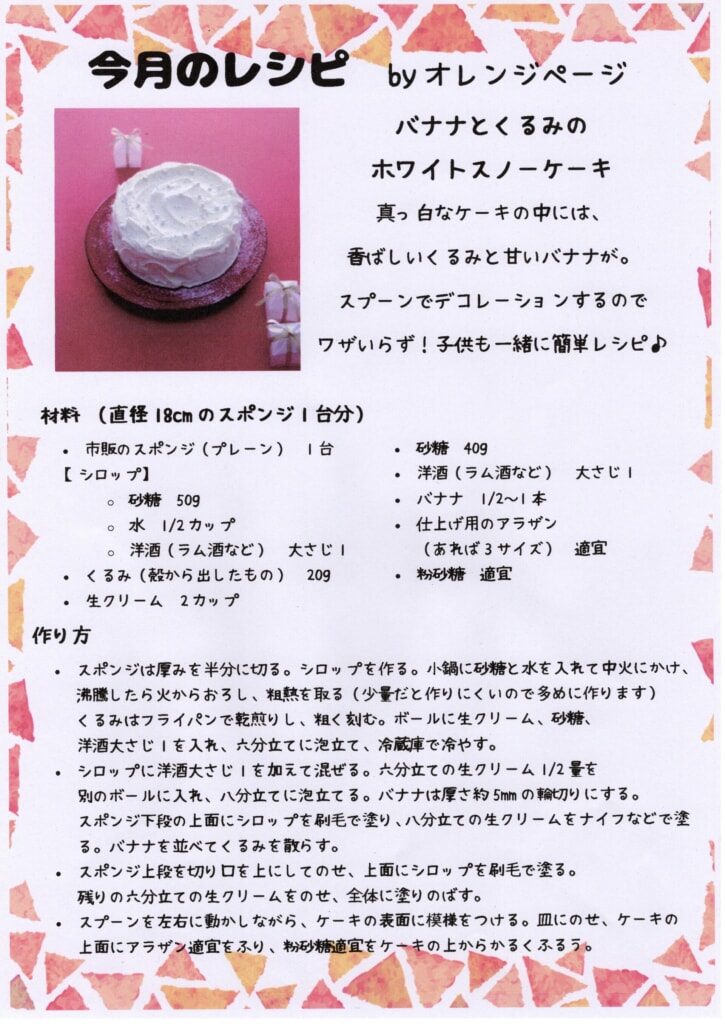 今月のレシピ by オレンジページ
バナナとくるみの
ホワイトスノーケーキ
真っ白なケーキの中には、
香ばしいくるみと甘いバナナが。
スプーンでデコレーションするので
ワザいらず！子供も一緒に簡単レシピ♪
材料 （直径18cmのスポンジ1台分）
• 市販のスポンジ（プレーン） 1台
【シロップ】
○ 砂糖 50g
○ 水 1/2カップ
○ 洋酒（ラム酒など） 大さじ1
• くるみ（殻から出したもの） 20g
• 生クリーム 2カップ
• 砂糖 40g
• 洋酒（ラム酒など） 大さじ1
• バナナ 1/2～1本
• 仕上げ用のアラザン
（あれば3サイズ） 適宜
• 粉砂糖 適宜
作り方
• スポンジは厚みを半分に切る。シロップを作る。小鍋に砂糖と水を入れて中火にかけ、
沸騰したら火からおろし、粗熱を取る（少量だと作りにくいので多めに作ります）
くるみはフライパンで乾煎りし、粗く刻む。ボールに生クリーム、砂糖、
洋酒大さじ1を入れ、六分立てに泡立て、冷蔵庫で冷やす。
• シロップに洋酒大さじ1を加えて混ぜる。六分立ての生クリーム1/2量を
別のボールに入れ、八分立てに泡立てる。バナナは厚さ約5mmの輪切りにする。
スポンジ下段の上面にシロップを刷毛で塗り、八分立ての生クリームをナイフなどで塗
る。バナナを並べてくるみを散らす。
• スポンジ上段を切り口を上にしてのせ、上面にシロップを刷毛で塗る。
残りの六分立ての生クリームをのせ、全体に塗りのばす。
• スプーンを左右に動かしながら、ケーキの表面に模様をつける。皿にのせ、ケーキの
上面にアラザン適宜をふり、粉砂糖適宜をケーキの上からかるくふるう。